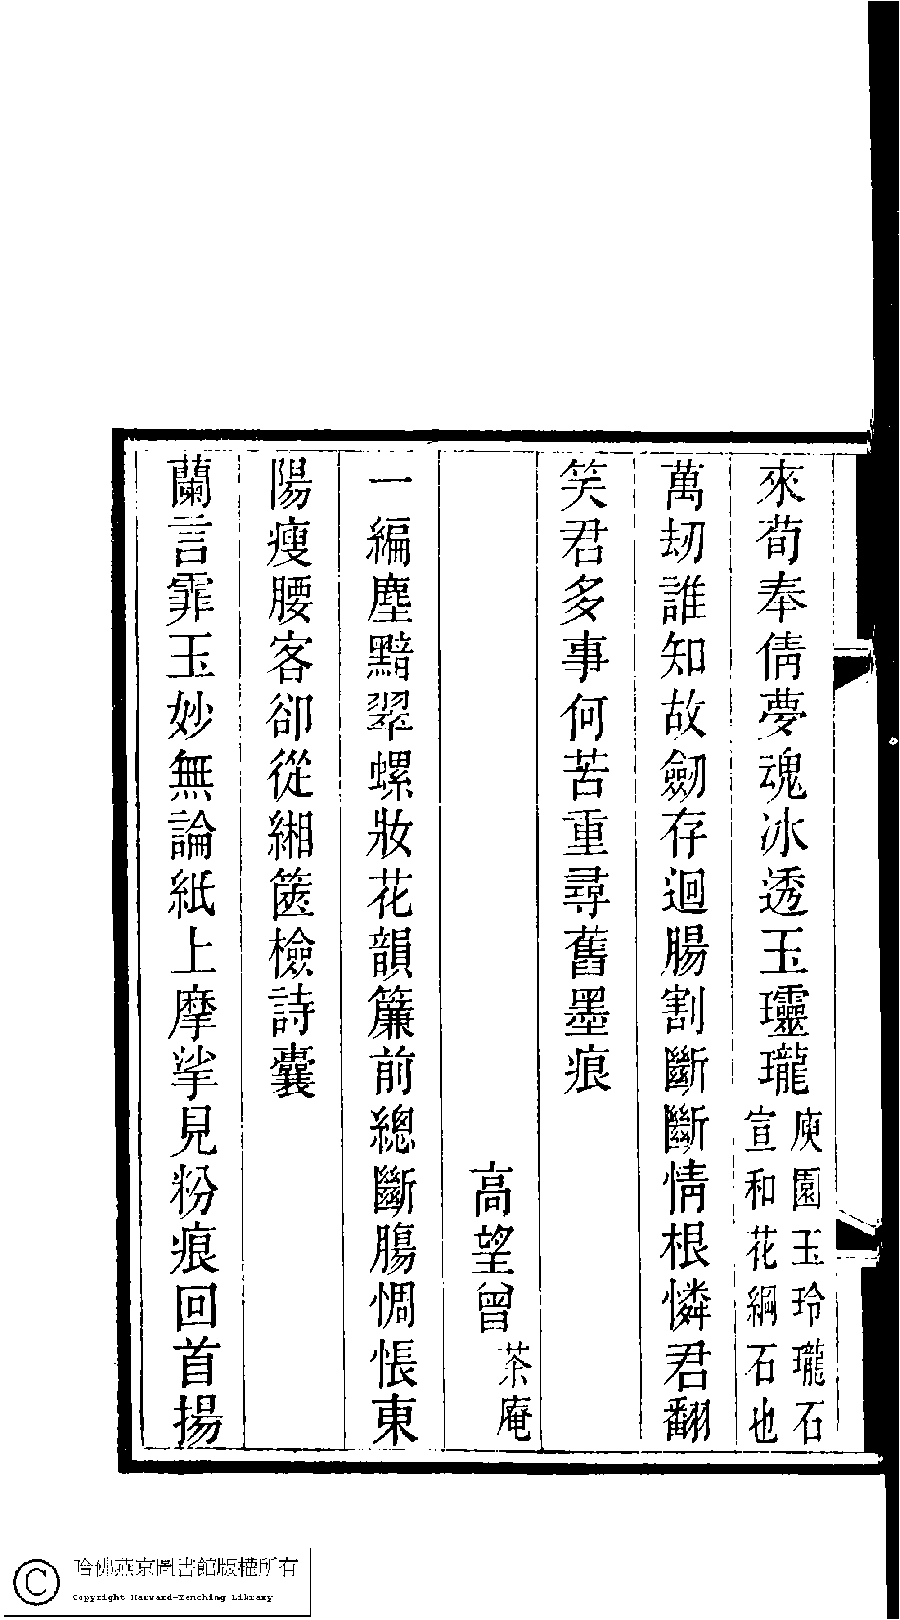 來荀奉倩夢魂冰透玉瓏瓏庾園玉玲瓏石
宣和花綱石也
萬刼誰知故劒存迴腸割斷斷情根憐君翻
笑君多事何苦重尋舊墨痕
高望曾茶庵
一編塵黯翠螺妝花韻簾前總斷腸惆悵東
陽瘦腰客卻從緗篋檢詩囊
蘭言霏玉妙無論紙上摩挲見粉痕回首揚
哈佛燕京圖書館版權所有
Copyright Harvard-Yenching Library